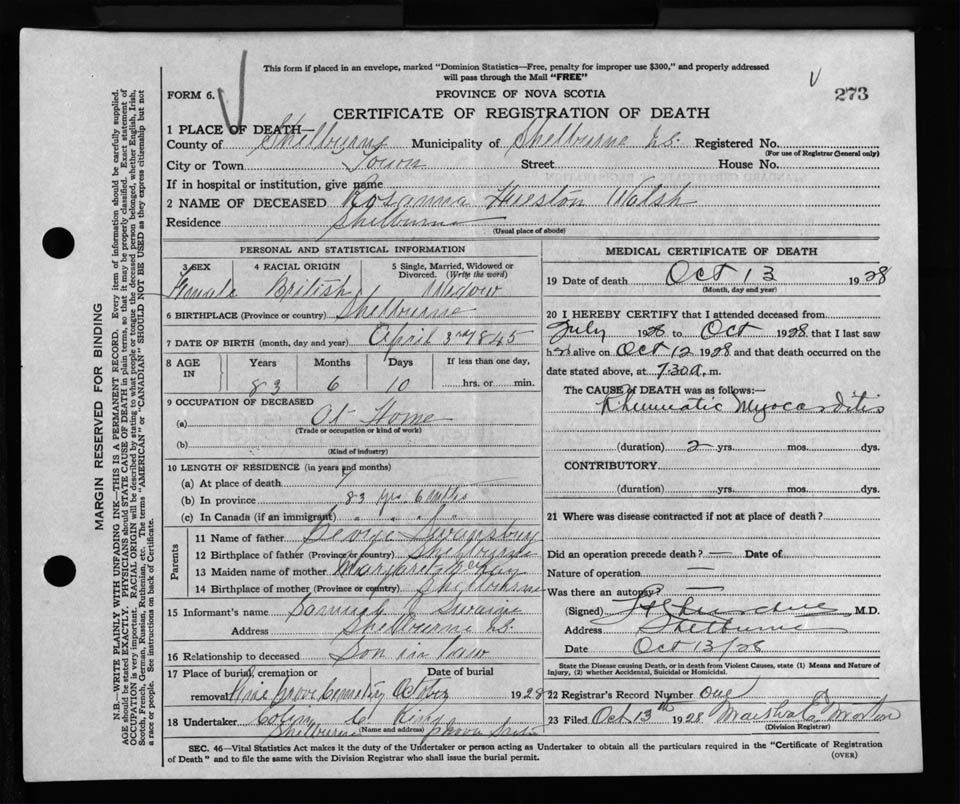 This form if placed in an envelope, marked "Dominion Statistics—Free, penalty for improper use $300," and properly addressed
will pass through the Mail "FREE"
FORM 6.
PROVINCE OF NOVA SCOTIA
273
CERTIFICATE OF REGISTRATION OF DEATH
1 PLACE OF DEATH—
County of Shelburne Municipality of Shelburne N.S. Registered No.
(For use of Registrar General only)
City or Town Town Street House No.
If in hospital or institution, give name
2 NAME OF DECEASED Rosanna Hueston Walsh
Residence Shelburne
(Usual place of abode)
PERSONAL AND STATISTICAL INFORMATION
3 SEX 4 RACIAL ORIGIN 5 Single, Married, Widowed or Divorced. (Write the word)
Female British Widow
6 BIRTHPLACE (Province or country) Shelbourne
7 DATE OF BIRTH (month, day and year) April 3rd 1845
8 AGE IN Years Months Days If less than one day,
83 6 10 hrs. or min.
9 OCCUPATION OF DECEASED
(a) At Home
(Trade or occupation or kind of work)
(b)
(Kind of industry)
10 LENGTH OF RESIDENCE (in years and months)
(a) At place of death
(b) In province 83 yrs 6 mths
(c) In Canada (if an immigrant)
Parents
11 Name of father
12 Birthplace of father (Province or country) Shelburne
13 Maiden name of mother Margaret McKay
14 Birthplace of mother (Province or country) Shelburne
15 Informant's name Swaine
Address Shelbourne N.S.
16 Relationship to deceased Son in law
17 Place of burial, cremation or removal Date of burial
Pine Grove Cemetery 1928
18 Undertaker King
Shelburne (Name and address) Nova Scotia
MEDICAL CERTIFICATE OF DEATH
19 Date of death Oct 13 1928
(Month, day and year)
20 I HEREBY CERTIFY that I attended deceased from
July 1926 to Oct 1928 that I last saw
her alive on Oct 12 1928 and that death occurred on the
date stated above, at 7.30 a. m.
The CAUSE OF DEATH was as follows:—
Rheumatic Myocarditis
(duration) 2 yrs. mos. dys.
CONTRIBUTORY
(duration) yrs. mos. dys.
21 Where was disease contracted if not at place of death?
Did an operation precede death? — Date of
Nature of operation —
Was there an autopsy?
(Signed) M.D.
Address Shelburne
Date Oct 13/28
State the Disease causing Death, or in death from Violent Causes, state (1) Means and Nature of
Injury, (2) whether Accidental, Suicidal or Homicidal.
22 Registrar's Record Number one
23 Filed Oct 13th 1928 Marshal E Morton
(Division Registrar)
SEC. 46—Vital Statistics Act makes it the duty of the Undertaker or person acting as Undertaker to obtain all the particulars required in the "Certificate of Registration
of Death" and to file the same with the Division Registrar who shall issue the burial permit.
(OVER)
MARGIN RESERVED FOR BINDING
N.B.—WRITE PLAINLY WITH UNFADING INK—THIS IS A PERMANENT RECORD. Every item of information should be carefully supplied.
AGE should be stated EXACTLY. PHYSICIANS should STATE CAUSE OF DEATH in plain terms, so that it may be properly classified. Exact statement of
OCCUPATION is very important. RACIAL ORIGIN will be described by stating to what people or tongue the deceased person belonged, whether English, Irish,
Scotch, French, German, Russian, Ruthenian, etc. The terms "AMERICAN" or "CANADIAN" SHOULD NOT BE USED as they express citizenship but not
a race or people. See instructions on back of Certificate.